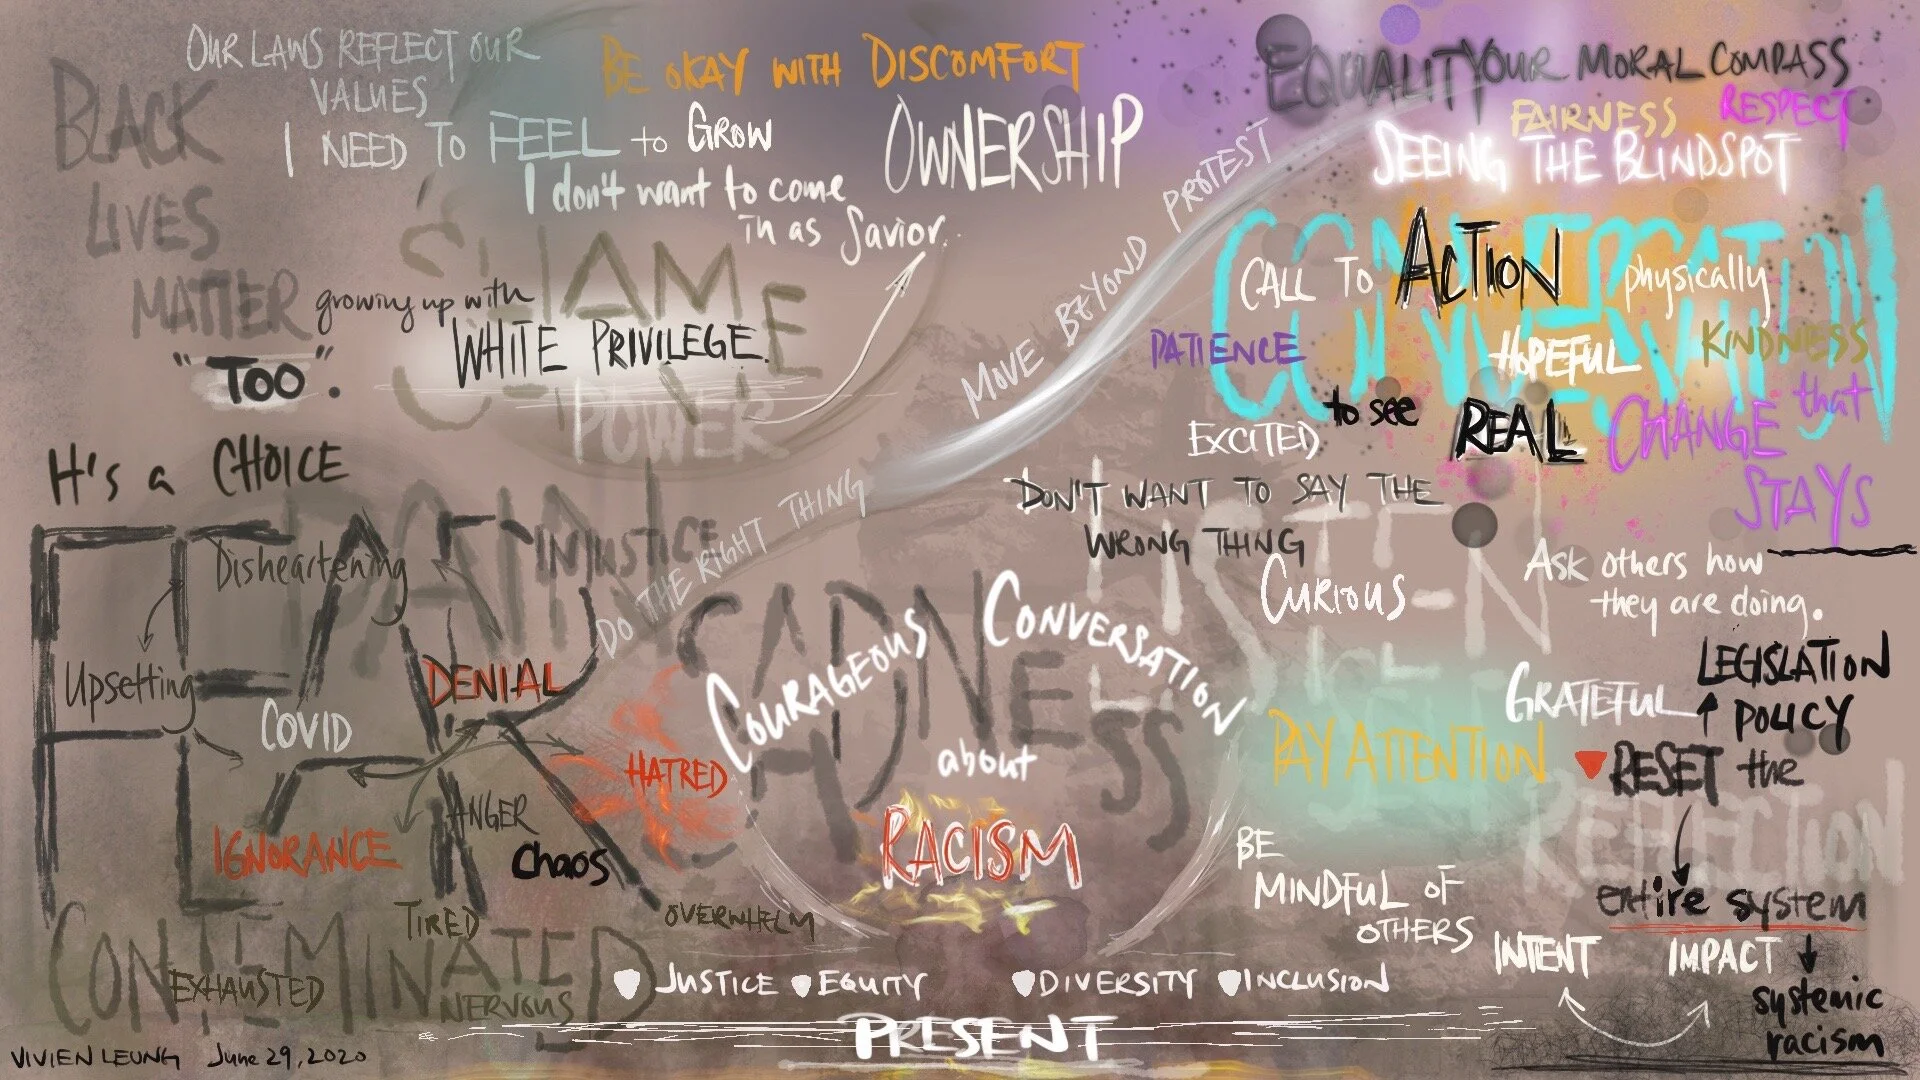 OUR LAWS REFLECT OUR
VALUES
BE OKAY WITH DISCOMFORT
I NEED TO FEEL to GROW
OWNERSHIP
I don't want to come
in as Savior..
BLACK
LIVES
MATTER
"TOO".
growing up with
SHAME
WHITE PRIVILEGE.
POWER
It's a CHOICE
EQUALITY
YOUR MORAL COMPASS
FAIRNESS
RESPECT
SEEING THE BLINDSPOT
CONVERSATION
CALL TO ACTION physically
PATIENCE
HOPEFUL
KINDNESS
EXCITED to see REAL CHANGE that
STAYS
DO THE RIGHT THING
MOVE BEYOND PROTEST
DON'T WANT TO SAY THE
WRONG THING
LISTEN
CURIOUS
ASK others how
they are doing.
FEAR
PAIN
INJUSTICE
Disheartening
Upsetting
COVID
DENIAL
HATRED
IGNORANCE
ANGER
Chaos
TIRED
OVERWHELM
CONTEMINATED
EXHAUSTED
NERVOUS
SADNESS
COURAGEOUS CONVERSATION
about
RACISM
PAY ATTENTION
GRATEFUL
LEGISLATION
POLICY
RESET the
REFLECTION
entire system
BE
MINDFUL OF
OTHERS
INTENT
IMPACT
systemic
racism
JUSTICE EQUITY DIVERSITY INCLUSION
PRESENT
VIVIEN LEUNG June 29, 2020